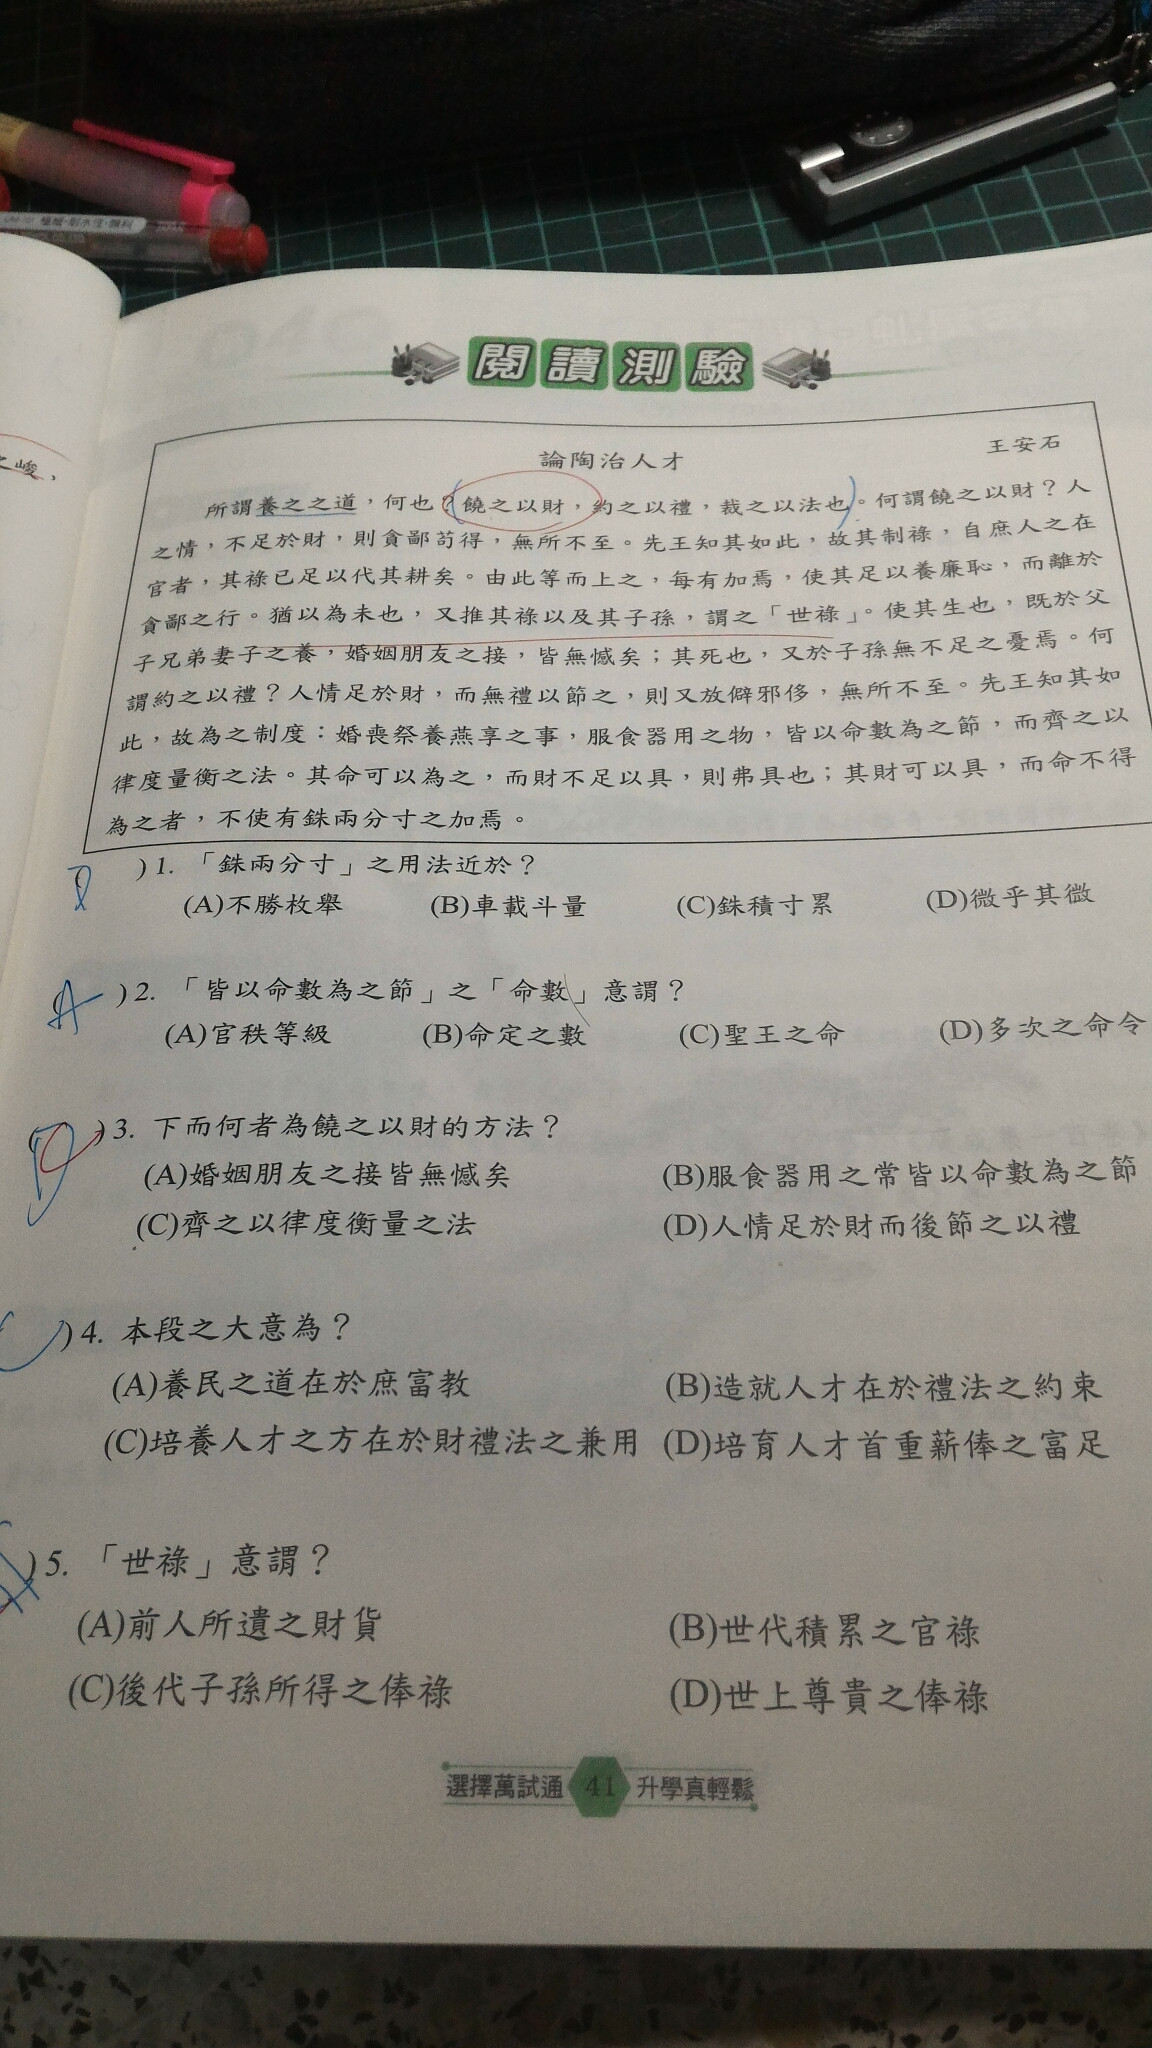 閱讀測驗
論陶冶人才
王安石
所謂養之之道,何也?饒之以財,約之以禮,裁之以法也。何謂饒之以財?人
之情,不足於財,則貪鄙苟得,無所不至。先王知其如此,故其制祿,自庶人之在
官者,其祿已足以代其耕矣。由此等而上之,每有加焉,使其足以養廉恥,而離於
貪鄙之行。猶以為未也,又推其祿以及其子孫,謂之「世祿」。使其生也,既於父
子兄弟妻子之養,婚姻朋友之接,皆無憾矣;其死也,又於子孫無不足之憂焉。何
謂約之以禮?人情足於財,而無禮以節之,則又放僻邪侈,無所不至。先王知其如
此,故為之制度:婚喪祭養燕享之事,服食器用之物,皆以命數為之節,而齊之以
律度量衡之法。其命可以為之,而財不足以具,則弗具也;其財可以具,而命不得
為之者,不使有銖兩分寸之加焉。
)1. 「銖兩分寸」之用法近於?
(A)不勝枚舉 (B)車載斗量 (C)銖積寸累 (D)微乎其微
A )2. 「皆以命數為之節」之「命數」意謂?
(A)官秩等級 (B)命定之數 (C)聖王之命 (D)多次之命令
D )3. 下而何者為饒之以財的方法?
(A)婚姻朋友之接皆無憾矣 (B)服食器用之常皆以命數為之節
(C)齊之以律度衡量之法 (D)人情足於財而後節之以禮
)4. 本段之大意為?
(A)養民之道在於庶富教 (B)造就人才在於禮法之約束
(C)培養人才之方在於財禮法之兼用 (D)培育人才首重薪俸之富足
)5. 「世祿」意謂?
(A)前人所遺之財貨 (B)世代積累之官祿
(C)後代子孫所得之俸祿 (D)世上尊貴之俸祿
選擇萬試通 41 升學真輕鬆